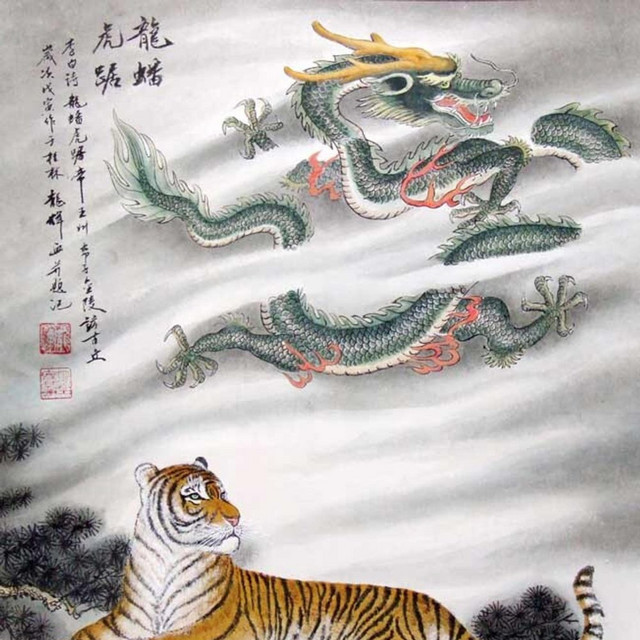 龍蟠
虎踞
李白诗龍蟠虎踞帝王州帝子金陵訪古丘
歲次戊寅作于桂林龍輝画并题记